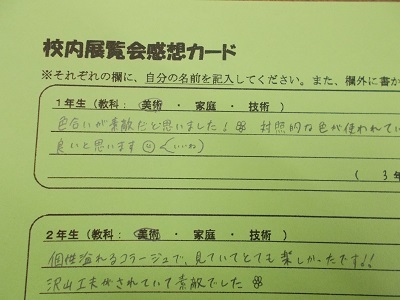 校内展覧会感想カード
※それぞれの欄に、自分の名前を記入してください。また、欄外に書か
1年生（教科： 美術 ・ 家庭 ・ 技術 ）
色合いが素敵だと思いました！ 対照的な色が使われてい
良いと思います いいね
（ 3年
2年生（教科： 美術 ・ 家庭 ・ 技術 ）
個性溢れるコラージュで、見ていてとても楽しかったです!!
沢山工夫がされていて素敵でした